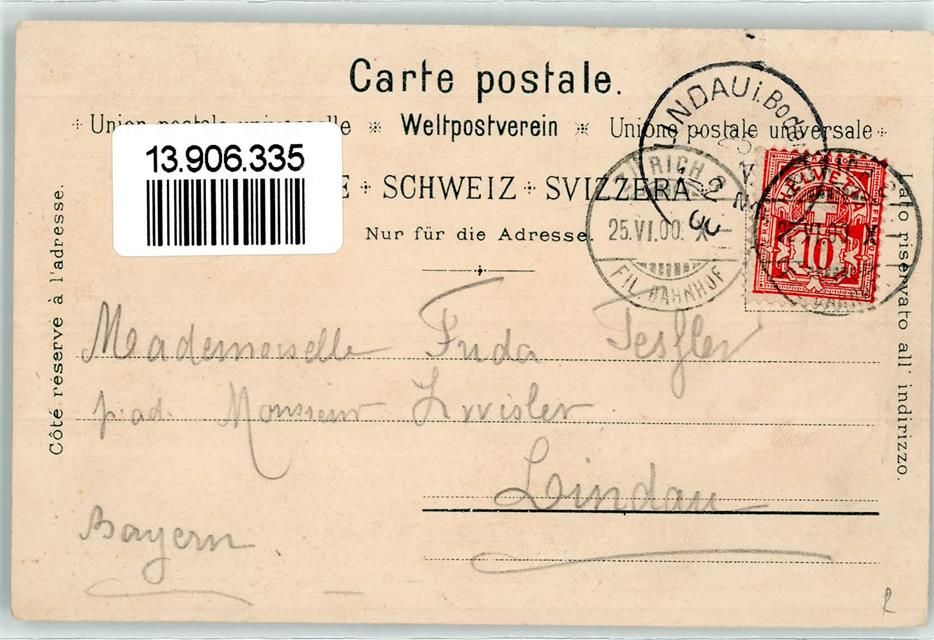 Carte postale.
Union postale universelle * Weltpostverein * Unione postale universale
LINDAU i. Bode
13.906.335
E + SCHWEIZ + SVIZZERA
HELVETIA
10
Nur für die Adresse.
ZÜRICH 2
25.VI.00. X
FIL. BAHNHOF
Côté réservé à l'adresse.
Lato riservato all' indirizzo.
Mademoiselle Frida Tessler
p. ad. Monsieur Zwisler
Lindau
Bayern.